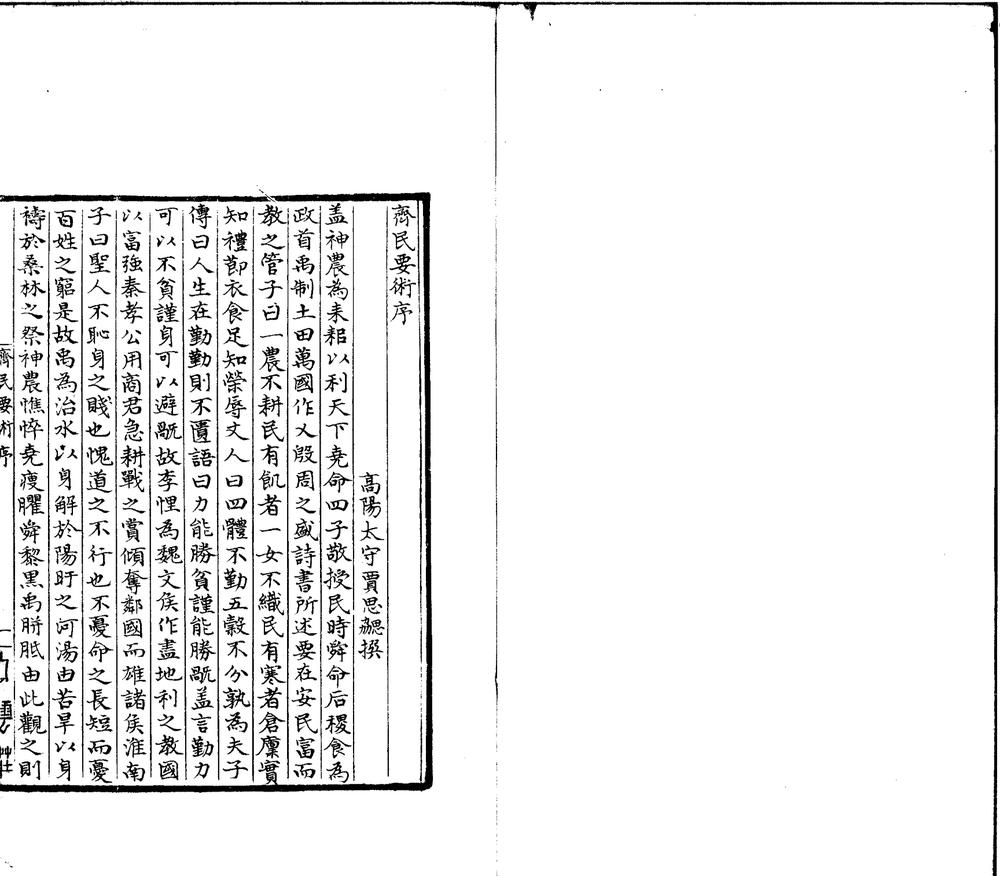 齊民要術序
高陽太守賈思勰撰
盖神農為耒耜以利天下堯命四子敬授民時舜命后稷食為
政首禹制土田萬國作乂殷周之盛詩書所述要在安民富而
教之管子曰一農不耕民有飢者一女不織民有寒者倉廩實
知禮節衣食足知榮辱丈人曰四體不勤五穀不分孰為夫子
傳曰人生在勤勤則不匱語曰力能勝貧謹能勝䣛盖言勤力
可以不貧謹身可以避䣛故李悝為魏文侯作盡地利之教國
以富強秦孝公用商君急耕戰之賞傾奪鄰國而雄諸侯淮南
子曰聖人不恥身之賤也愧道之不行也不憂命之長短而憂
百姓之窮是故禹為治水以身解於陽盱之河湯由苦旱以身
禱於桑林之祭神農憔悴堯瘦臞舜黎黑禹胼胝由此觀之則
齊民要術序
一